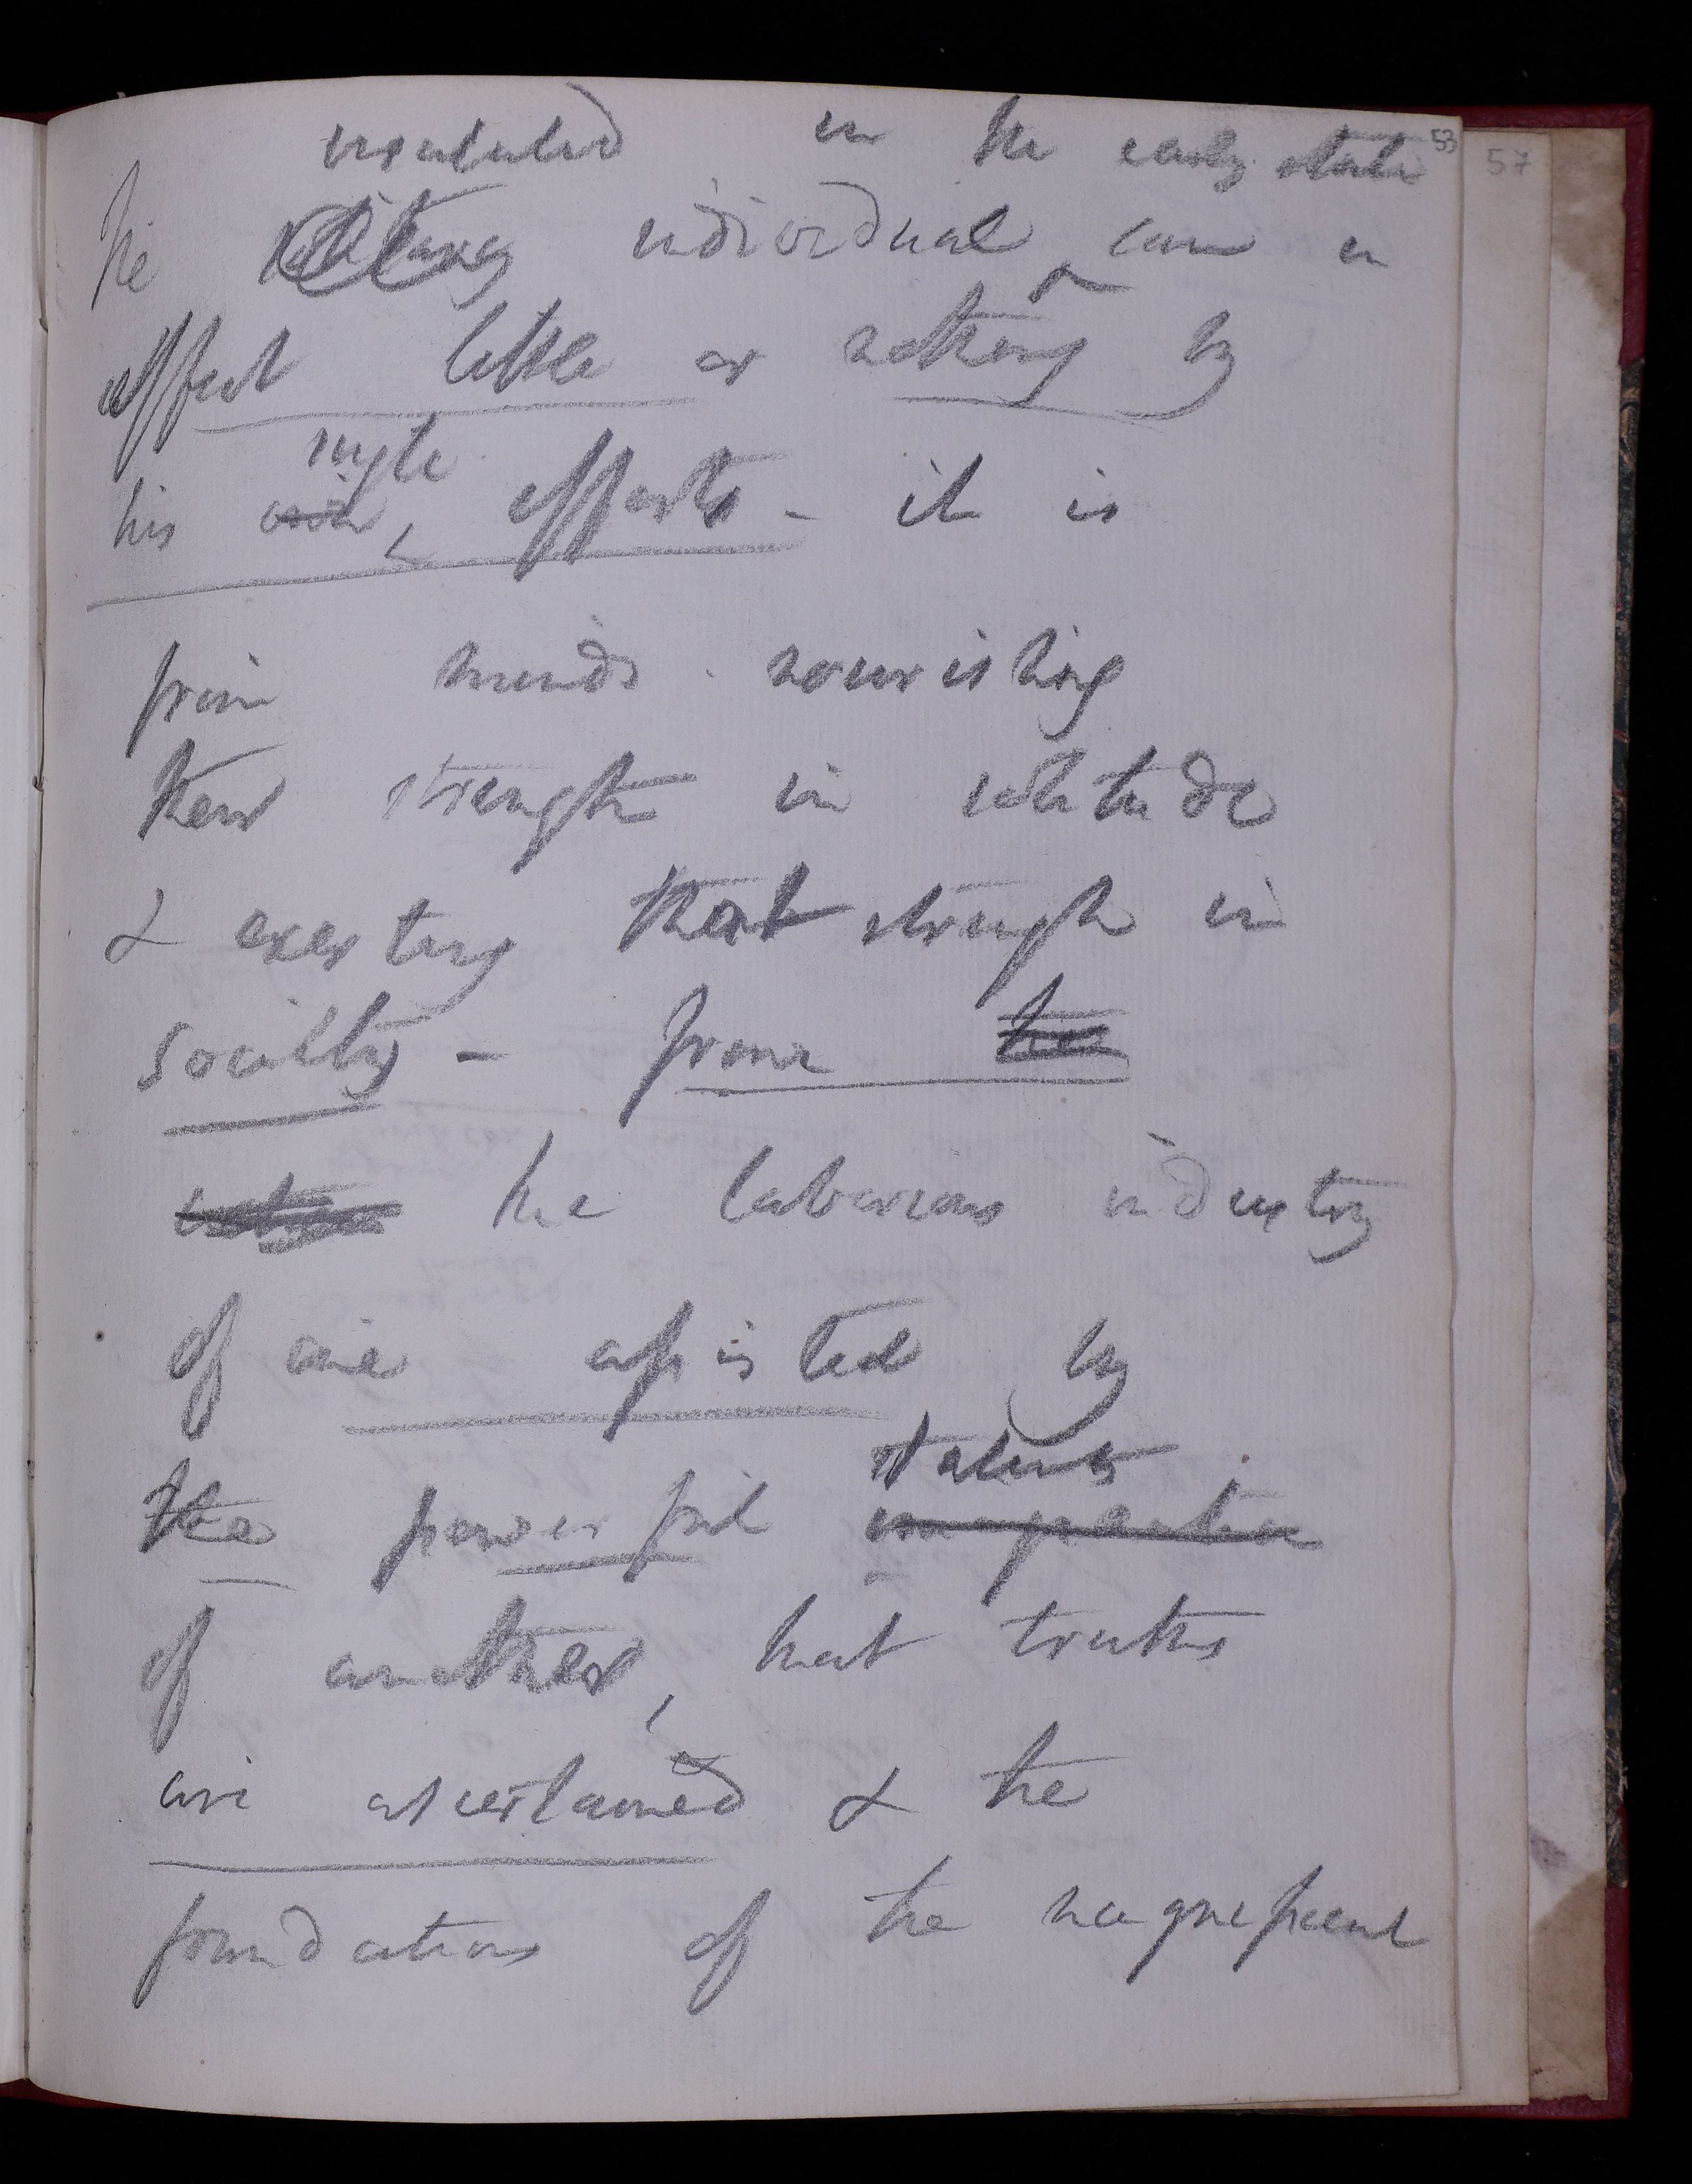 insulated in the early state 53 57
The solitary individual can in
effect little or nothing by
single
his own, efforts - it is
from minds nourishing
their strength in solitude
& exerting that strength in
society - from the
the laborious industry
of one assisted by
talents
the powerful imagination
of another, that truths
are ascertained & the
foundations of the magnificent